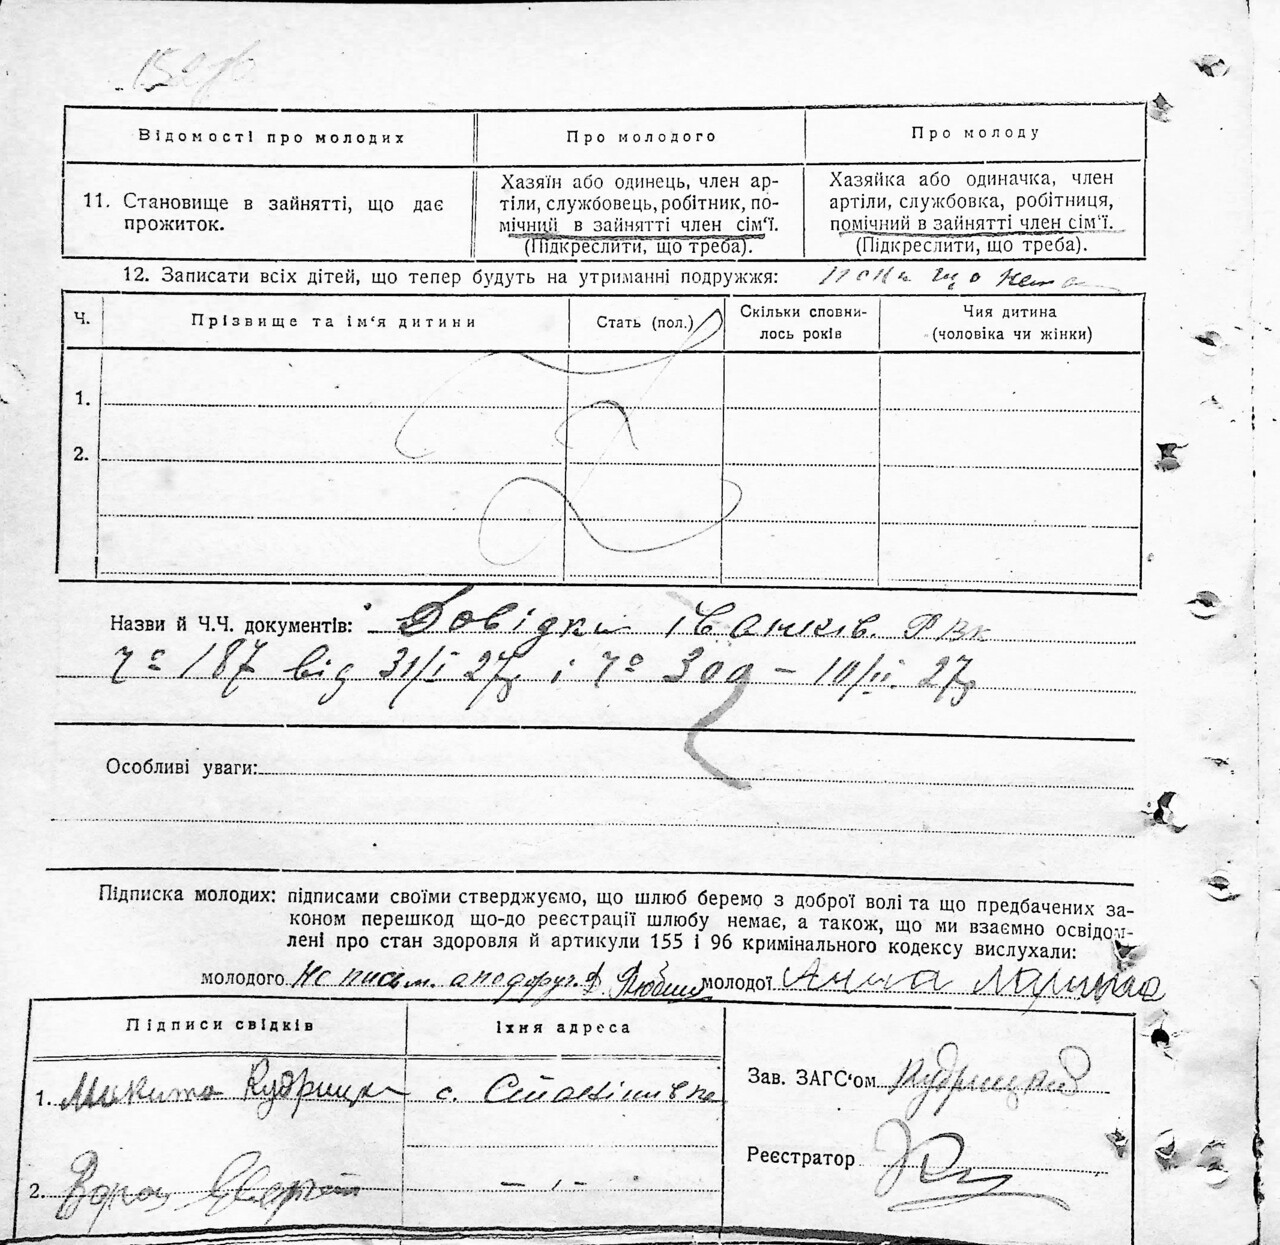 Відомості про молодих
Про молодого
Про молоду
11. Становище в зайнятті, що дає
прожиток.
Хазяїн або одинець, член ар-
тіли, службовець, робітник, по-
мічний в зайнятті член сім'ї.
(Підкреслити, що треба).
Хазяйка або одиначка, член
артіли, службовка, робітниця,
помічний в зайнятті член сім'ї.
(Підкреслити, що треба).
12. Записати всіх дітей, що тепер будуть на утриманні подружжя: поки що нема
Ч.
Прізвище та ім'я дитини
Стать (пол.)
Скільки сповни-
лось років
Чия дитина
(чоловіка чи жінки)
1.
2.
Назви й Ч.Ч. документів: Довідки Іванків. РВК
187 від 31/I 27р і 300 – 10/II. 27р
Особливі уваги:
Підписка молодих: підписами своїми стверджуємо, що шлюб беремо з доброї волі та що предбачених за-
коном перешкод що-до реєстрації шлюбу немає, а також, що ми взаємно освідом-
лені про стан здоровля й артикули 155 і 96 кримінального кодексу вислухали:
молодого Не письм. молодої Анна
Підписи свідків
Їхня адреса
1. Микита Кудрицьк с.
2.
Зав. ЗАГС'ом Кудрицкий
Реєстратор